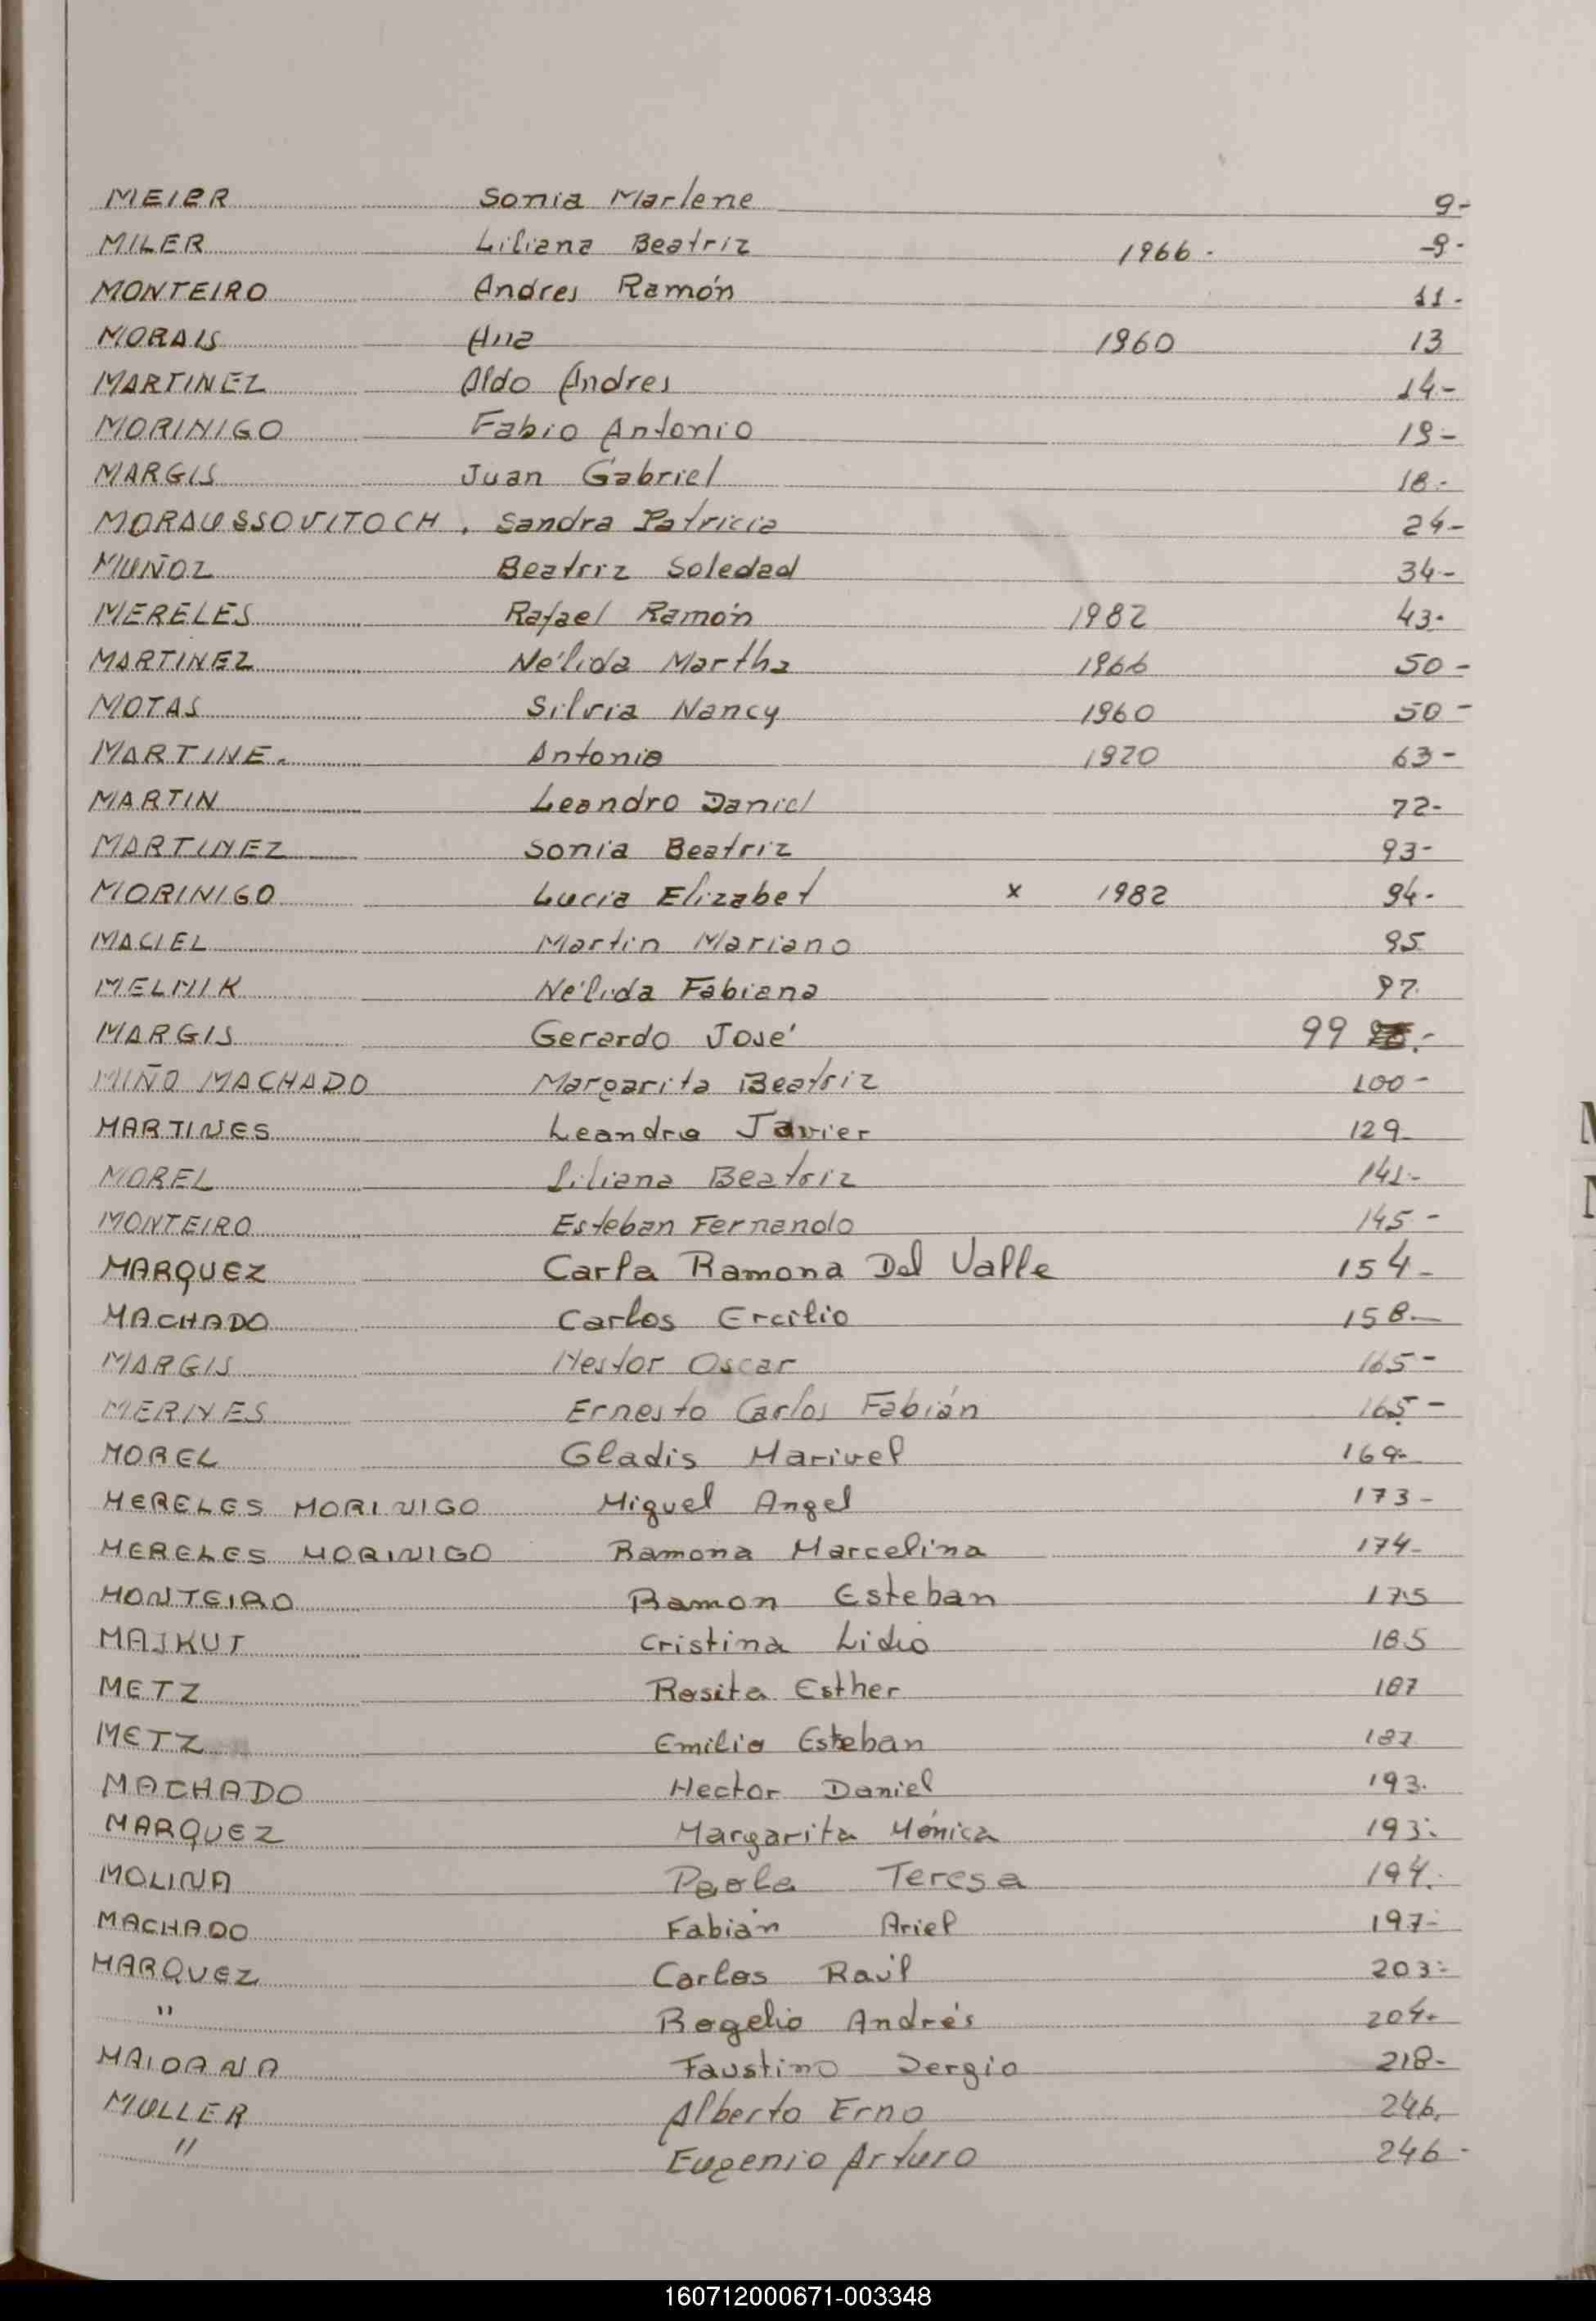 MEIER Sonia Marlene 9-
MILER Liliana Beatriz 1966- 9-
MONTEIRO Andres Ramón 11-
MORAIS Ana 1960 13
MARTINEZ Aldo Andres 14-
MORINIGO Fabio Antonio 19-
MARGIS Juan Gabriel 18-
MORAUSSOVITOCH, Sandra Patricia 24-
MUÑOZ Beatriz Soledad 34-
MERELES Rafael Ramón 1982 43-
MARTINEZ Nélida Martha 1966 50-
MOTAS Silvia Nancy 1960 50-
MARTINE. Antonio 1920 63-
MARTIN Leandro Daniel 72-
MARTINEZ Sonia Beatriz 93-
MORINIGO Lucia Elizabet x 1982 94-
MACIEL Martin Mariano 95
MELNIK Nélida Fabiana 97
MARGIS Gerardo José 99
MIÑO MACHADO Margarita Beatriz 100-
MARTINES Leandro Javier 129
MOREL Liliana Beatriz 141-
MONTEIRO Esteban Fernando 145-
MARQUEZ Carla Ramona Del Valle 154-
MACHADO Carlos Ercilio 158-
MARGIS Nestor Oscar 165-
MERINES Ernesto Carlos Fabián 165-
MOREL Gladis Marivel 169-
MERELES MORINIGO Miguel Angel 173-
MERELES MORINIGO Ramona Marcelina 174-
MONTEIRO Ramon Esteban 175
MAJKUT Cristina Lidio 185
METZ Rosita Esther 187
METZ Emilio Esteban 187
MACHADO Hector Daniel 193.
MARQUEZ Margarita Mónica 193.
MOLINA Paola Teresa 194.
MACHADO Fabián Ariel 197-
MARQUEZ Carlos Raúl 203-
" Rogelio Andrés 204-
MAIDANA Faustino Sergio 218-
MULLER Alberto Erno 246.
" Eugenio Arturo 246-
160712000671-003348